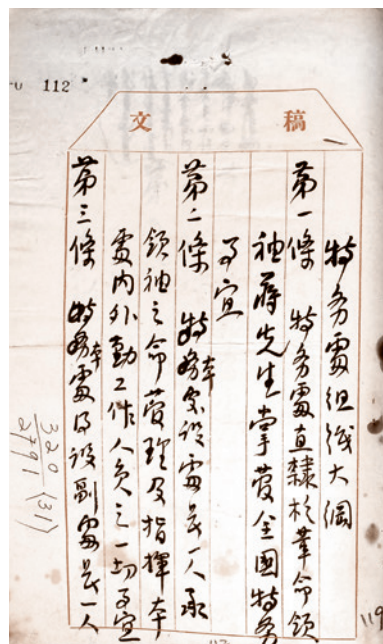 112
文稿
特务處组織大綱
第一條 特务處直隸於革命領
袖蔣先生掌管全國特务
事宜
第二條 本處设處長一人承
領袖之命管理及指揮本
處内外勤工作人员之一切事宜
第三條 本處得设副處長一人
320
2791 (31)
119